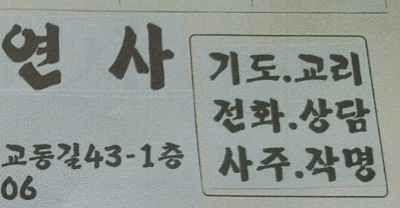 연 사
기도.교리
전화.상담
사주.작명
교동길43-1층
06